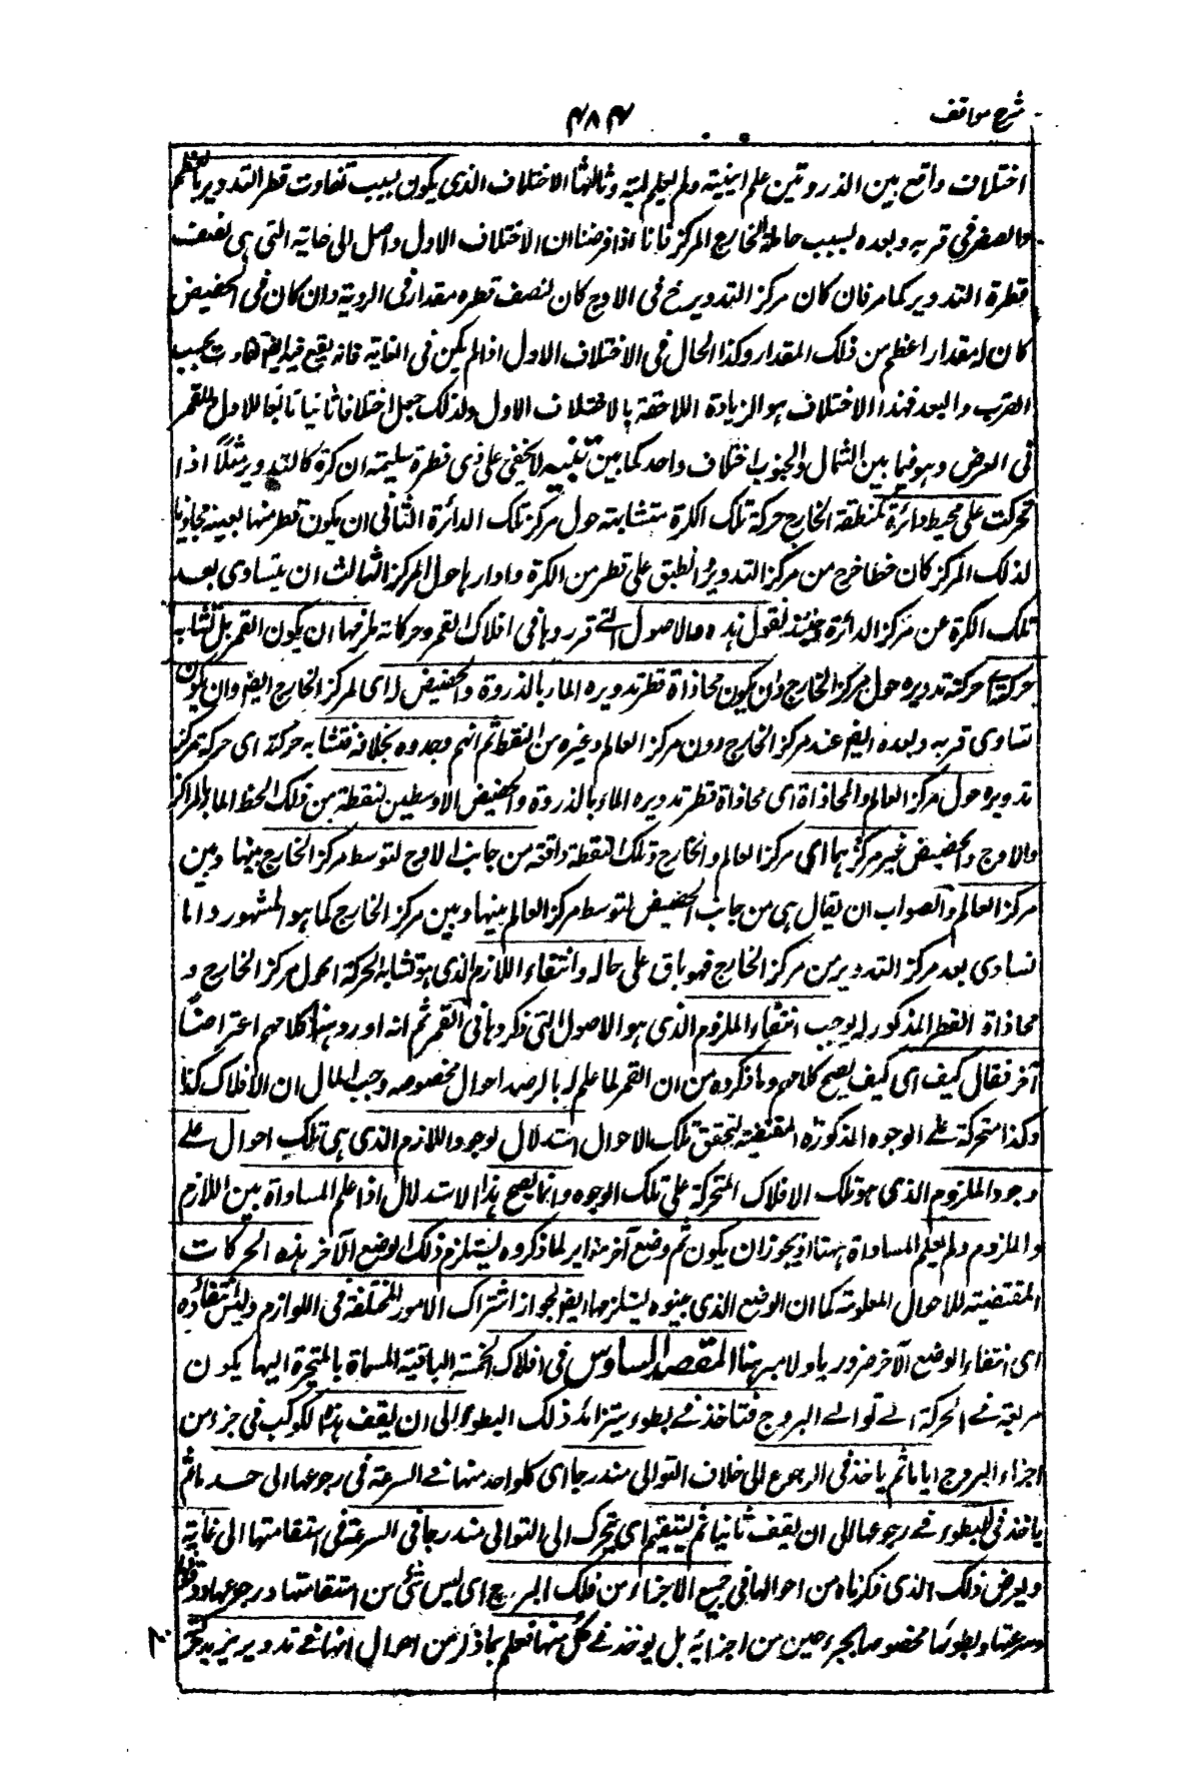 شرح مواقف
۴۸۴
اختلاف واقع بين الذروتين علم انيته ولم يعلم لميته وثالثها الاختلاف الذى يكون بسبب تفاوت قطر التدوير بالعظم
والصغر فى قربه وبعده بسبب حامله الخارج المركز فانا اذا فرضنا ان الاختلاف الاول واصل الى غايته التى هى نصف
قطرة التدوير كما مر فان كان مركز التدوير ح فى الاوج كان لنصف قطره مقدار فى الروية وان كان فى الحضيض
كان له مقدار اعظم من ذلك المقدار وكذا الحال فى الاختلاف الاول اذا لم يكن فى الغاية فانه يقع فيه ايضا تفاوت بحسب
القرب والبعد فهذا الاختلاف هو الزيادة اللاحقة بالاختلاف الاول ولذلك جعل اختلافا ثانيا تابعا للاول وللقمر
فى العرض وهو فيما بين الشمال والجنوب اختلاف واحد كما بين تنبيه لا يخفى على ذى فطرة سليمة ان كرة كالتدوير مثلا اذا
تحركت على محيط دائرة كمنطقة الخارج حركة تلك الكرة متشابهة حول مركز تلك الدائرة الثانى ان يكون قطر منها بعينه محاذيا
لذلك المركز كان خطا خرج من مركز التدوير انطبق على قطر من الكرة وادارها حول المركز الثالث ان يتساوى بعد
تلك الكرة عن مركز الدائرة وحينئذ نقول هذه الاصول التى قرروها فى افلاك القمر وحركاته يلزمها ان يكون القمر بل تشابه
حركته اى حركة تدويره حول مركز الخارج وان يكون محاذاة قطر تدويره المار بالذروة والحضيض له اى لمركز الخارج ايضا وان يكون
تساوى قربه وبعده ايضا عند مركز الخارج دون مركز العالم وغيره من النقط ثم انهم وجدوه بخلافه فتشابه حركته اى حركة مركز
تدويره حول مركز العالم والمحاذاة اى محاذاة قطر تدويره المار بالذروة والحضيض الاوسطين لنقطة من ذلك الخط المار بالمراكز
والاوج والحضيض غير مركزهما اى مركز العالم والخارج وتلك النقطة واقعة من جانب الاوج لتوسط مركز الخارج بينها وبين
مركز العالم والصواب ان يقال هى من جانب الحضيض لتوسط مركز العالم بينها وبين مركز الخارج كما هو المشهور واما
تساوى بعد مركز التدوير من مركز الخارج فهو باق على حاله وانتفاء اللازم الذى هو تشابه الحركة حول مركز الخارج و
محاذاة القطر المذكور له يوجب انتفاء الملزوم الذى هو الاصول التى ذكروها فى القمر ثم انه اورد على كلامهم اعتراضا
آخر فقال كيف اى كيف يصح كلامهم وما ذكروه من ان القمر لما علم له بالرصد احوال مخصوصة وجب القول ان الافلاك كذا
وكذا متحركة على الوجوه المذكورة المقتضية لتحقق تلك الاحوال استدلال بوجود اللازم الذى هى تلك احوال على
وجود الملزوم الذى هو تلك الافلاك المتحركة على تلك الوجوه وانما يصح هذا الاستدلال اذا علم المساواة بين اللازم
والملزوم ولم يعلم المساواة ههنا اذ يجوز ان يكون ثم وضع آخر مغاير لما ذكروه يستلزم ذلك الوضع الآخر هذه الحركات
المقتضية للاحوال المعلومة كما ان الوضع الذى عينوه يستلزمها ايضا لجواز اشتراك الامور المختلفة فى اللوازم وليس انتفاءه
اى انتفاء الوضع الآخر ضروريا ولا مبرهنا المقصد السادس فى افلاك الخمسة الباقية المسماة بالمتحيرة انها يكون
سريعة فى الحركة الى توالى البروج فتاخذ فى بطوء يتزائد ذلك البطوء الى ان يقف هذا الكوكب فى جزء من
اجزاء البروج اياما ثم ياخذ فى الرجوع الى خلاف التوالى متدرجا اى كلواحد منها فى السرعة فى رجوعها الى حد ما ثم
ياخذ فى البطوء فى رجوعها الى ان يقف ثانيا ثم يستقيم اى يتحرك الى التوالى متدرجا فى السرعة فى استقامتها الى غاية
ويعرض ذلك الذى ذكرناه من احوالها فى جميع الاجزاء من فلك البروج اى ليس شئ من استقامتها ورجوعها ووقوفها
وسرعتها وبطوئها مخصوصا بجزء معين من اجزائه بل يوخذ فى كل منها فعلم بما ذكر من احوال انها فى تدوير